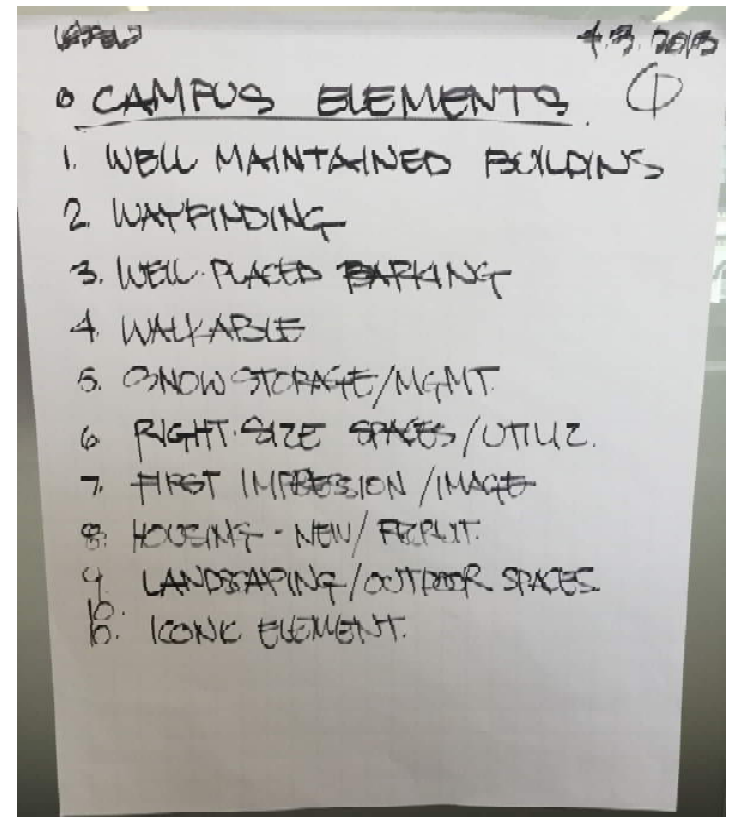 4.3.2013
• CAMPUS ELEMENTS. ①
1. WELL MAINTAINED BUILDINS
2. WAYFINDING
3. WELL-PLACED PARKING
4. WALKABLE
5. SNOW STORAGE/MGMT.
6. RIGHT-SIZE SPACES/UTILIZ.
7. FIRST IMPRESSION/IMAGE
8. HOUSING - NEW/
9. LANDSCAPING/OUTDOOR SPACES
10. ICONIC ELEMENT.